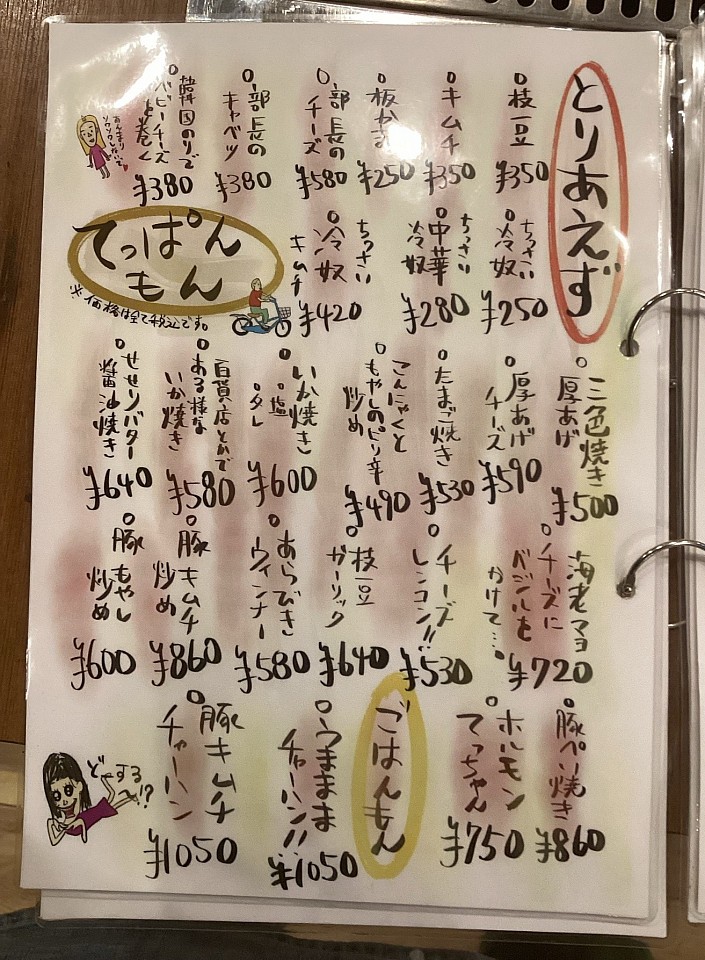 とりあえず
枝豆
¥350
キムチ
¥350
板かま
¥250
部長の
チーズ
¥580
部長の
キャベツ
¥380
韓国のりで
ベビーチーズ
を巻く
¥380
ちっさい
冷奴
¥250
ちっさい
中華
冷奴
¥280
ちっさい
冷奴
キムチ
¥420
てっぱん
もん
※価格は全て税込です。
三色焼き
厚あげ
¥500
厚あげ
チーズ
¥590
たまご焼き
¥530
こんにゃくと
もやしのピリ辛
炒め
¥490
いか焼き
・塩
・タレ
¥600
百貨店とかで
ある様な
いか焼き
¥580
せせりバター
醤油焼き
¥640
海老マヨ
チーズに
バジルを
かけて…。
¥720
チーズ
レンコン!!
¥530
枝豆
ガーリック
¥640
あらびき
ウィンナー
¥580
豚キムチ
炒め
¥860
豚もやし
炒め
¥600
豚ぺい焼き
¥860
ホルモン
てっちゃん
¥750
ごはんもん
うままま
チャーハン!!
¥1050
豚キムチ
チャーハン
¥1050
どーする
へ!?